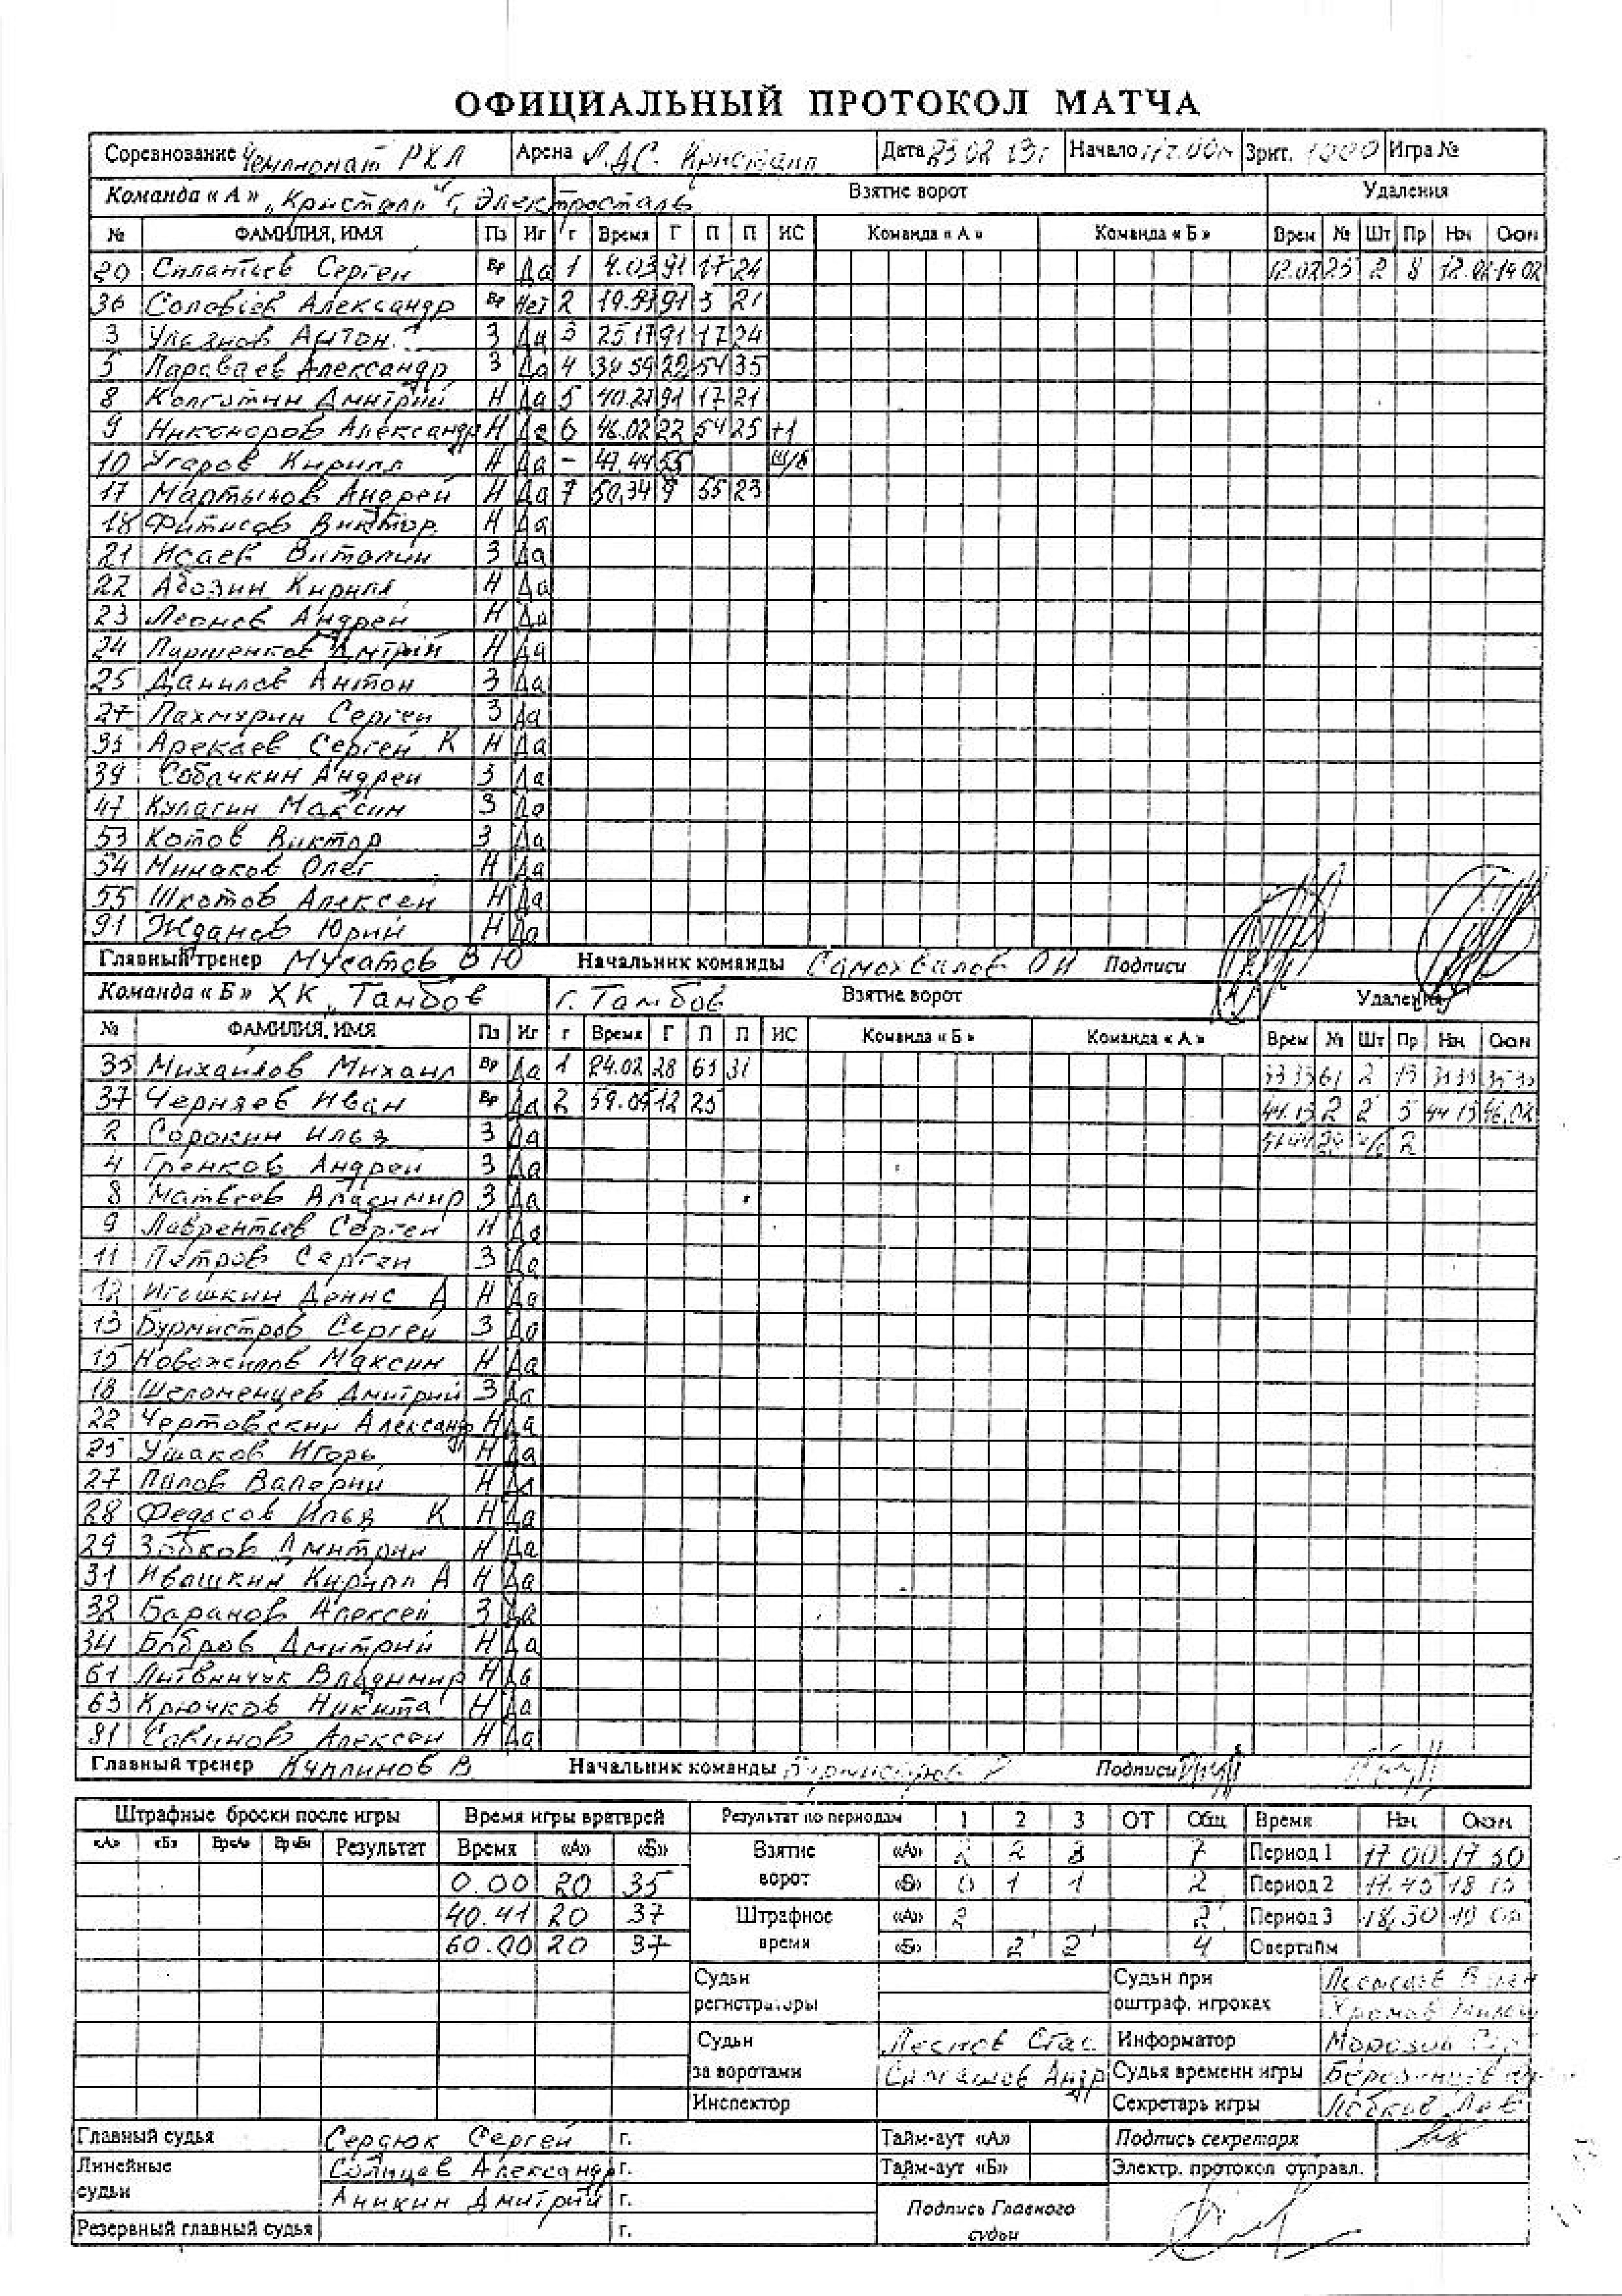 ОФИЦИАЛЬНЫЙ ПРОТОКОЛ МАТЧА
Соревнование Чемпионат РХЛ Арена Л.ДС. Кристалл Дата 23 02 13г Начало 17.00 Зрит. 1000 Игра №
Команда « А » „Кристалл" г. Электросталь Взятие ворот Удаления
№ ФАМИЛИЯ, ИМЯ Пз Иг г Время Г П П ИС Команда « А » Команда « Б » Врем № Шт Пр Нач Окон
20 Сплантьев Сергей Вр Да 1 4.03 91 17 24 12.02 25 2 8 12.02 14 02
36 Соловьев Александр Вр Нет 2 91 3 21
3 Уланов Антон З Да 3 25 17 91 17 24
5 Параваев Александр З Да 4 22 54 35
8 Колготин Дмитрий Н Да 5 40.21 91 17 21
9 Никоноров Александр Н Да 6 46.02 22 54 25 +1
10 Угаров Кирилл Н Да - 47.44 55 Ш/б
17 Мартынов Андрей Н Да 7 50.34 9 55 23
18 Фитисов Виктор Н Да
21 Исаев Виталий З Да
22 Абозин Кирилл Н Да
23 Леонов Андрей Н Да
24 Паршенков Дмтрий Н Да
25 Данилов Антон З Да
27 Пахмурин Сергей З Да
35 Арекаев Сергей К Н Да
39 Собачкин Андрей З Да
47 Кулагин Максим З Да
53 Котов Виктор З Да
54 Минаков Олег Н Да
55 Шкотов Алексей Н Да
91 Жданов Юрий Н Да
Главный тренер Мусатов В Ю Начальник команды Самохвалов О И Подписи
Команда « Б » ХК „Тамбов г. Тамбов Взятие ворот Удаления
№ ФАМИЛИЯ, ИМЯ Пз Иг г Время Г П П ИС Команда « Б » Команда « А » Врем № Шт Пр Нач Окон
35 Михайлов Михаил Вр Да 1 24.02 28 61 31 33 33 61 2
37 Черняев Иван Вр Да 2 59.09 12 25 44.13 2 2 5 44 13 46.02
2 Сорокин Илья З Да 29 2
4 Гренков Андрей З Да
8 Матвеев Владимир З Да
9 Лаврентьев Сергей Н Да
11 Петров Сергей З Да
12 Игошкин Денис А Н Да
13 Бурмистров Сергей З Да
15 Новожилов Максим Н Да
18 Шеломенцев Дмитрий З Да
22 Чертовский Александр Н Да
25 Ушаков Игорь Н Да
27 Попов Валерий Н Да
28 Федосов Илья К Н Да
29 Зобков Дмитрий Н Да
31 Ивашкин Кирилл А Н Да
32 Баранов Алексей З Да
34 Бобров Дмитрий Н Да
61 Литвинчук Владимир Н Да
63 Крючков Никита Н Да
81 Савинов Алексей Н Да
Главный тренер Куплинов В Начальник команды Подписи
Штрафные броски после игры Время игры вратарей Результат по периодам 1 2 3 ОТ Общ Время Нач Окон
«А» «Б» Вр«А» Вр«Б» Результат Время «А» «Б» Взятие «А» 2 2 3 7 Период 1 17 00 17 30
0.00 20 35 ворот «Б» 0 1 1 2 Период 2 17.45 18 15
40.41 20 37 Штрафное «А» 2 2 Период 3 18.30
60.00 20 37 время «Б» 2 2 4 Овертайм
Судьи Судьи при
регистраторы оштраф. игроках
Судьи Леснов Стас Информатор Морозов
за воротами Судья времени игры
Инспектор Секретарь игры
Главный судья Сердюк Сергей г. Тайм-аут «А» Подпись секретаря
Линейные Солнцев Александр г. Тайм-аут «Б» Электр. протокол отправл.
судьи Аникин Дмитрий г. Подпись Главного
Резервный главный судья г. судьи